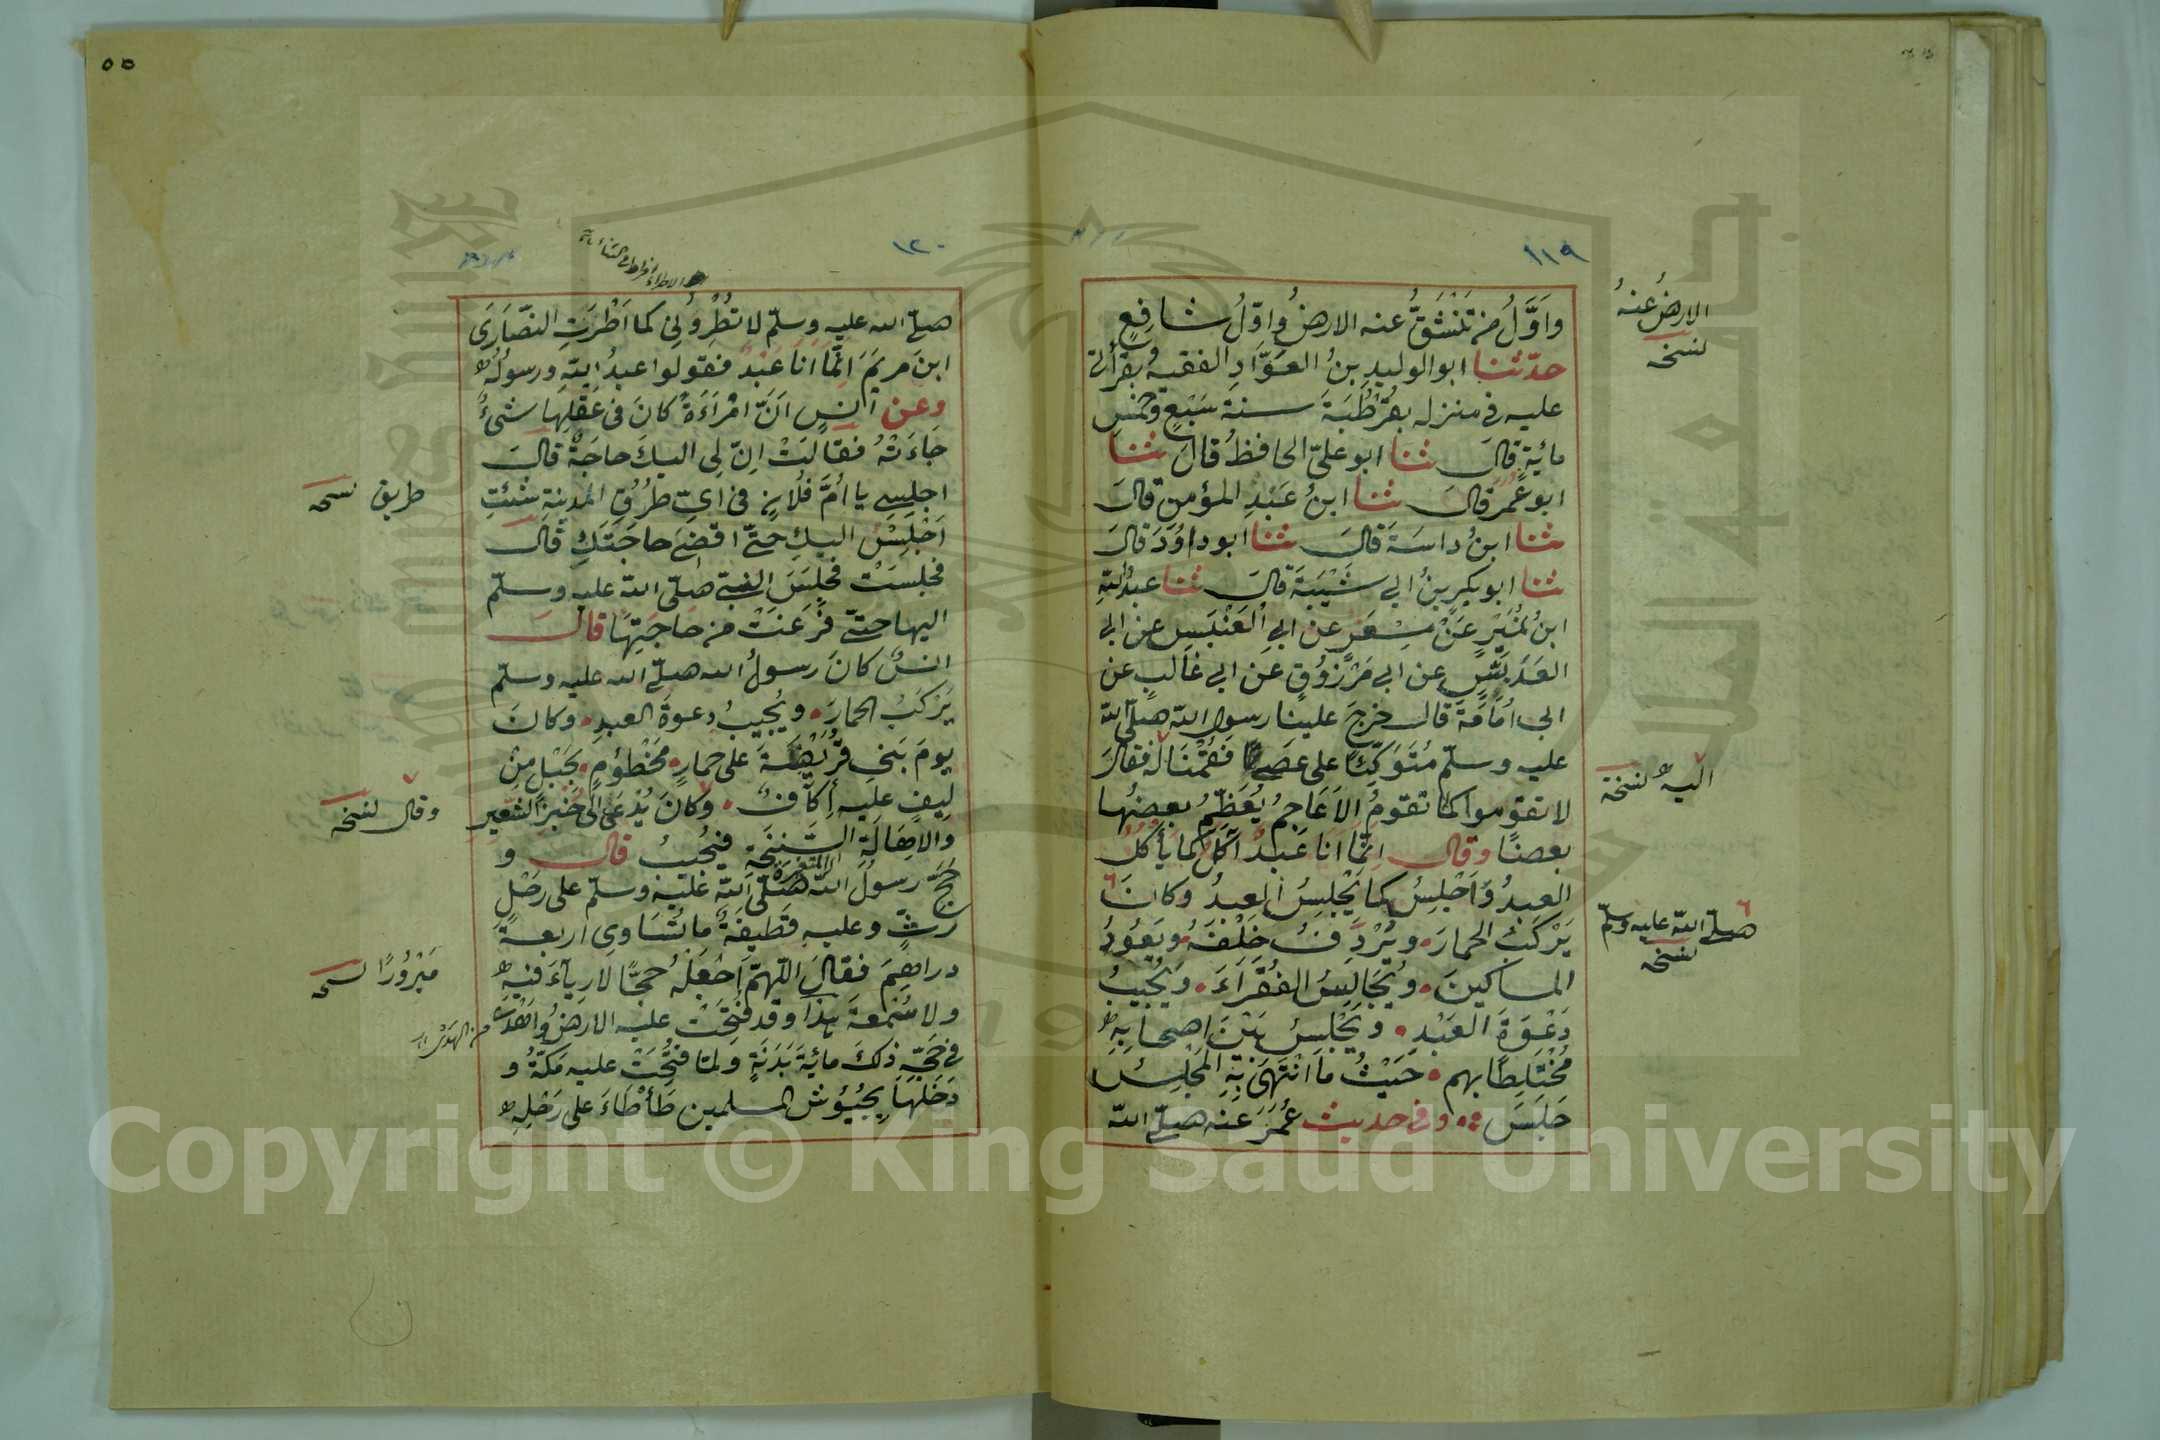 ١١٩
وَاَوَّلُ مَن تَنْشَقُّ عنه الارضُ وَاوّلُ شافِعٍ
حدّثنا ابو الوليدِ بنُ العَوَّادِ الفقيهُ بقرأتى
عليه فى منزله بقُرْطُبَةَ سنة سَبْعٍ وخمس
مائية قال ثنا ابو علىّ الحافظُ قال ثنا
ابو عُمر قال ثنا ابنُ عَبْدِ المؤمن قال
ثنا ابنُ داسَةَ قال ثنا ابو داوُدَ قال
ثنا ابو بكر بنُ ابى شَيْبَةَ قال ثنا عبدُ اللّه
ابنُ نُمَيْرٍ عَنْ مِسْعَرٍ عن ابى الْعَنْبَسِ عن ابى
العَدَبَّسِ عن ابى مَرْزُوُقٍ عن ابى غالبٍ عن
ابى اُمَامَةَ قال خرجَ علينا رسول اللّه صَلّى اللّه
عليه وسلّم مُتَوَكِّئًا على عَصًا فَقُمْنَا لَه فقال
لا تقوموا كما تقومُ الاَعَاجِمُ يُعَظِّمُ بعضُها
بعضًا وقال اِنَّمَا اَنَا عَبْدٌ آكلُ كما يأكلُ
العبدُ وَاَجْلِسُ كما يَجْلِسُ العبدُ وكانَ
يَرْكَبُ الحمارَ ويُرْدِفُ خَلْفَهُ ويَعُودُ
المساكينَ ويُجَالِسُ الفُقَرَاءَ ويُجِيبُ
دَعْوَةَ العَبْدِ ويَجْلِسُ بَيْنَ اصحابِهِ
مُخْتَلِطًا بهم حَيْثُ مَا انْتَهَى بِهِ المَجْلِسُ
جَلَسَ وفى حديث عُمَرَ عنه صلّى اللّه
الارضُ عنهُ
نسخه
اليه نسخة
صلّى اللّه عليه وسلّم
نسخه
٥٥
١٢٠
صلّى اللّه عليه وسلّم لا تُطْرُوُنِى كما اَطْرَتِ النّصَارَى
ابنَ مريَمَ اِنَّمَا اَنَا عَبْدٌ فقولوا عبدُ اللّهِ ورسولُهُ
وعن انسٍ اَنَّ امْرَاَةً كانَ فى عَقْلِها شىْءٌ
جَاءَتْهُ فقالَتْ اِنّ لِى اليكَ حاجَةً قال
اجلِسِى يا اُمَّ فُلانٍ فى اىِّ طُرُقِ المدينةِ شِئْتِ
اَجْلِسْ اليكِ حتّى اقضىَ حاجَتَكِ قال
فجلسَتْ فجلَسَ النبىّ صلّى اللّه عليه وسلّم
اليها حتّى فَرَغَتْ من حاجَتِهَا قال
انسٌ كانَ رسولُ اللّه صلّى اللّه عليه وسلّم
يَرْكَبُ الحمارَ ويُجيبُ دعوةَ العبدِ وكانَ
يومَ بَنى قُرَيْظَةَ على حِمارٍ مَخْطُوُمٍ بِحَبْلٍ مِنْ
ليفٍ علَيه اِكَافٌ وكانَ يُدْعَى الى خُبْزِ الشّعيرِ
والاِهَالَةِ السَّنِخَةِ فيُجيبُ قال و
المتغيرة
حَجَّ رسولُ اللّه صَلّى اللّه عليه وسلّم على رَحْلٍ
رَثٍّ وعليه قَطِيفَةٌ ما تُسَاوِى اربعةَ
دراهِمَ فقالَ اللّهمّ اجْعَلْهُ حجًّا لا رِيآءَ فيه
ولا سُمْعَةَ هذا وقد فُتِحَتْ عليه الارضُ واَهْدَى
فى حَجّهِ ذلكَ مائيةَ بَدَنَةٍ ولمّا فُتِحَتْ عليه مَكّةُ و
دَخَلَهَا بِجُيُوُشِ المسلمين طَأْطَاَءَ على رَحْلِهِ
طريق نسخه
وقال نسخه
مَبْرُورًا نسخه
Copyright © King Saud University